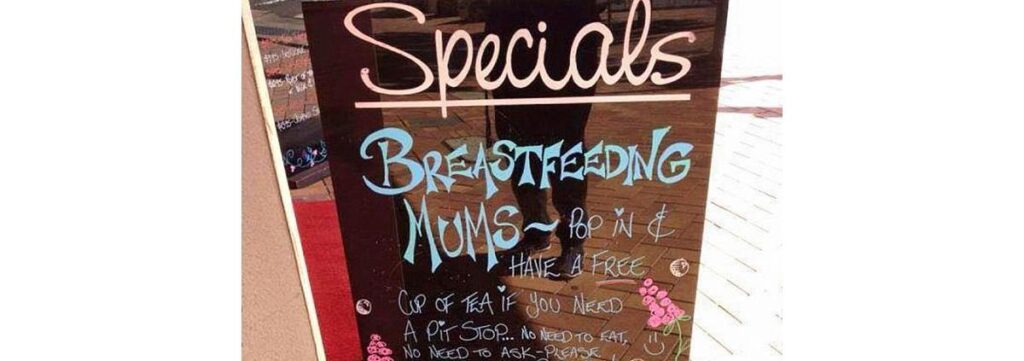 Specials
BREASTFEEDING
MUMS~ POP IN &
HAVE A FREE
CUP OF TEA IF YOU NEED
A PIT STOP... NO NEED TO EAT,
NO NEED TO ASK-PLEASE